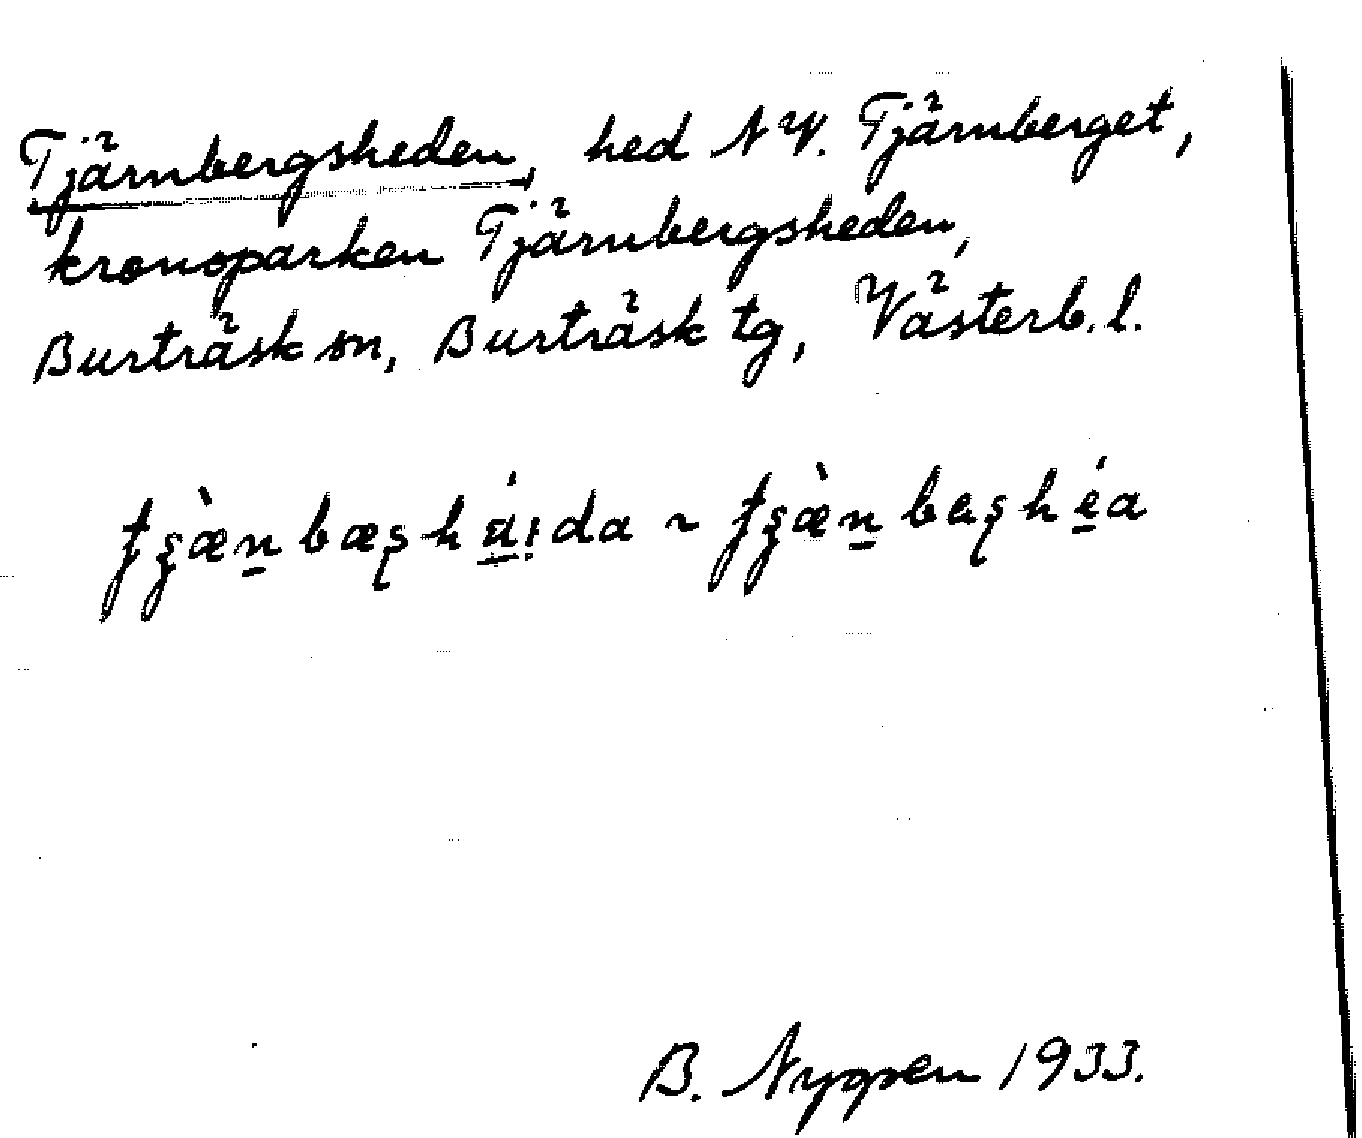 Tjärnbergsheden, hed NV. Tjärnberget,
kronoparken Tjärnbergsheden,
Burträsk sn, Burträsk tg, Västerb. l.
B. Nygren 1933.